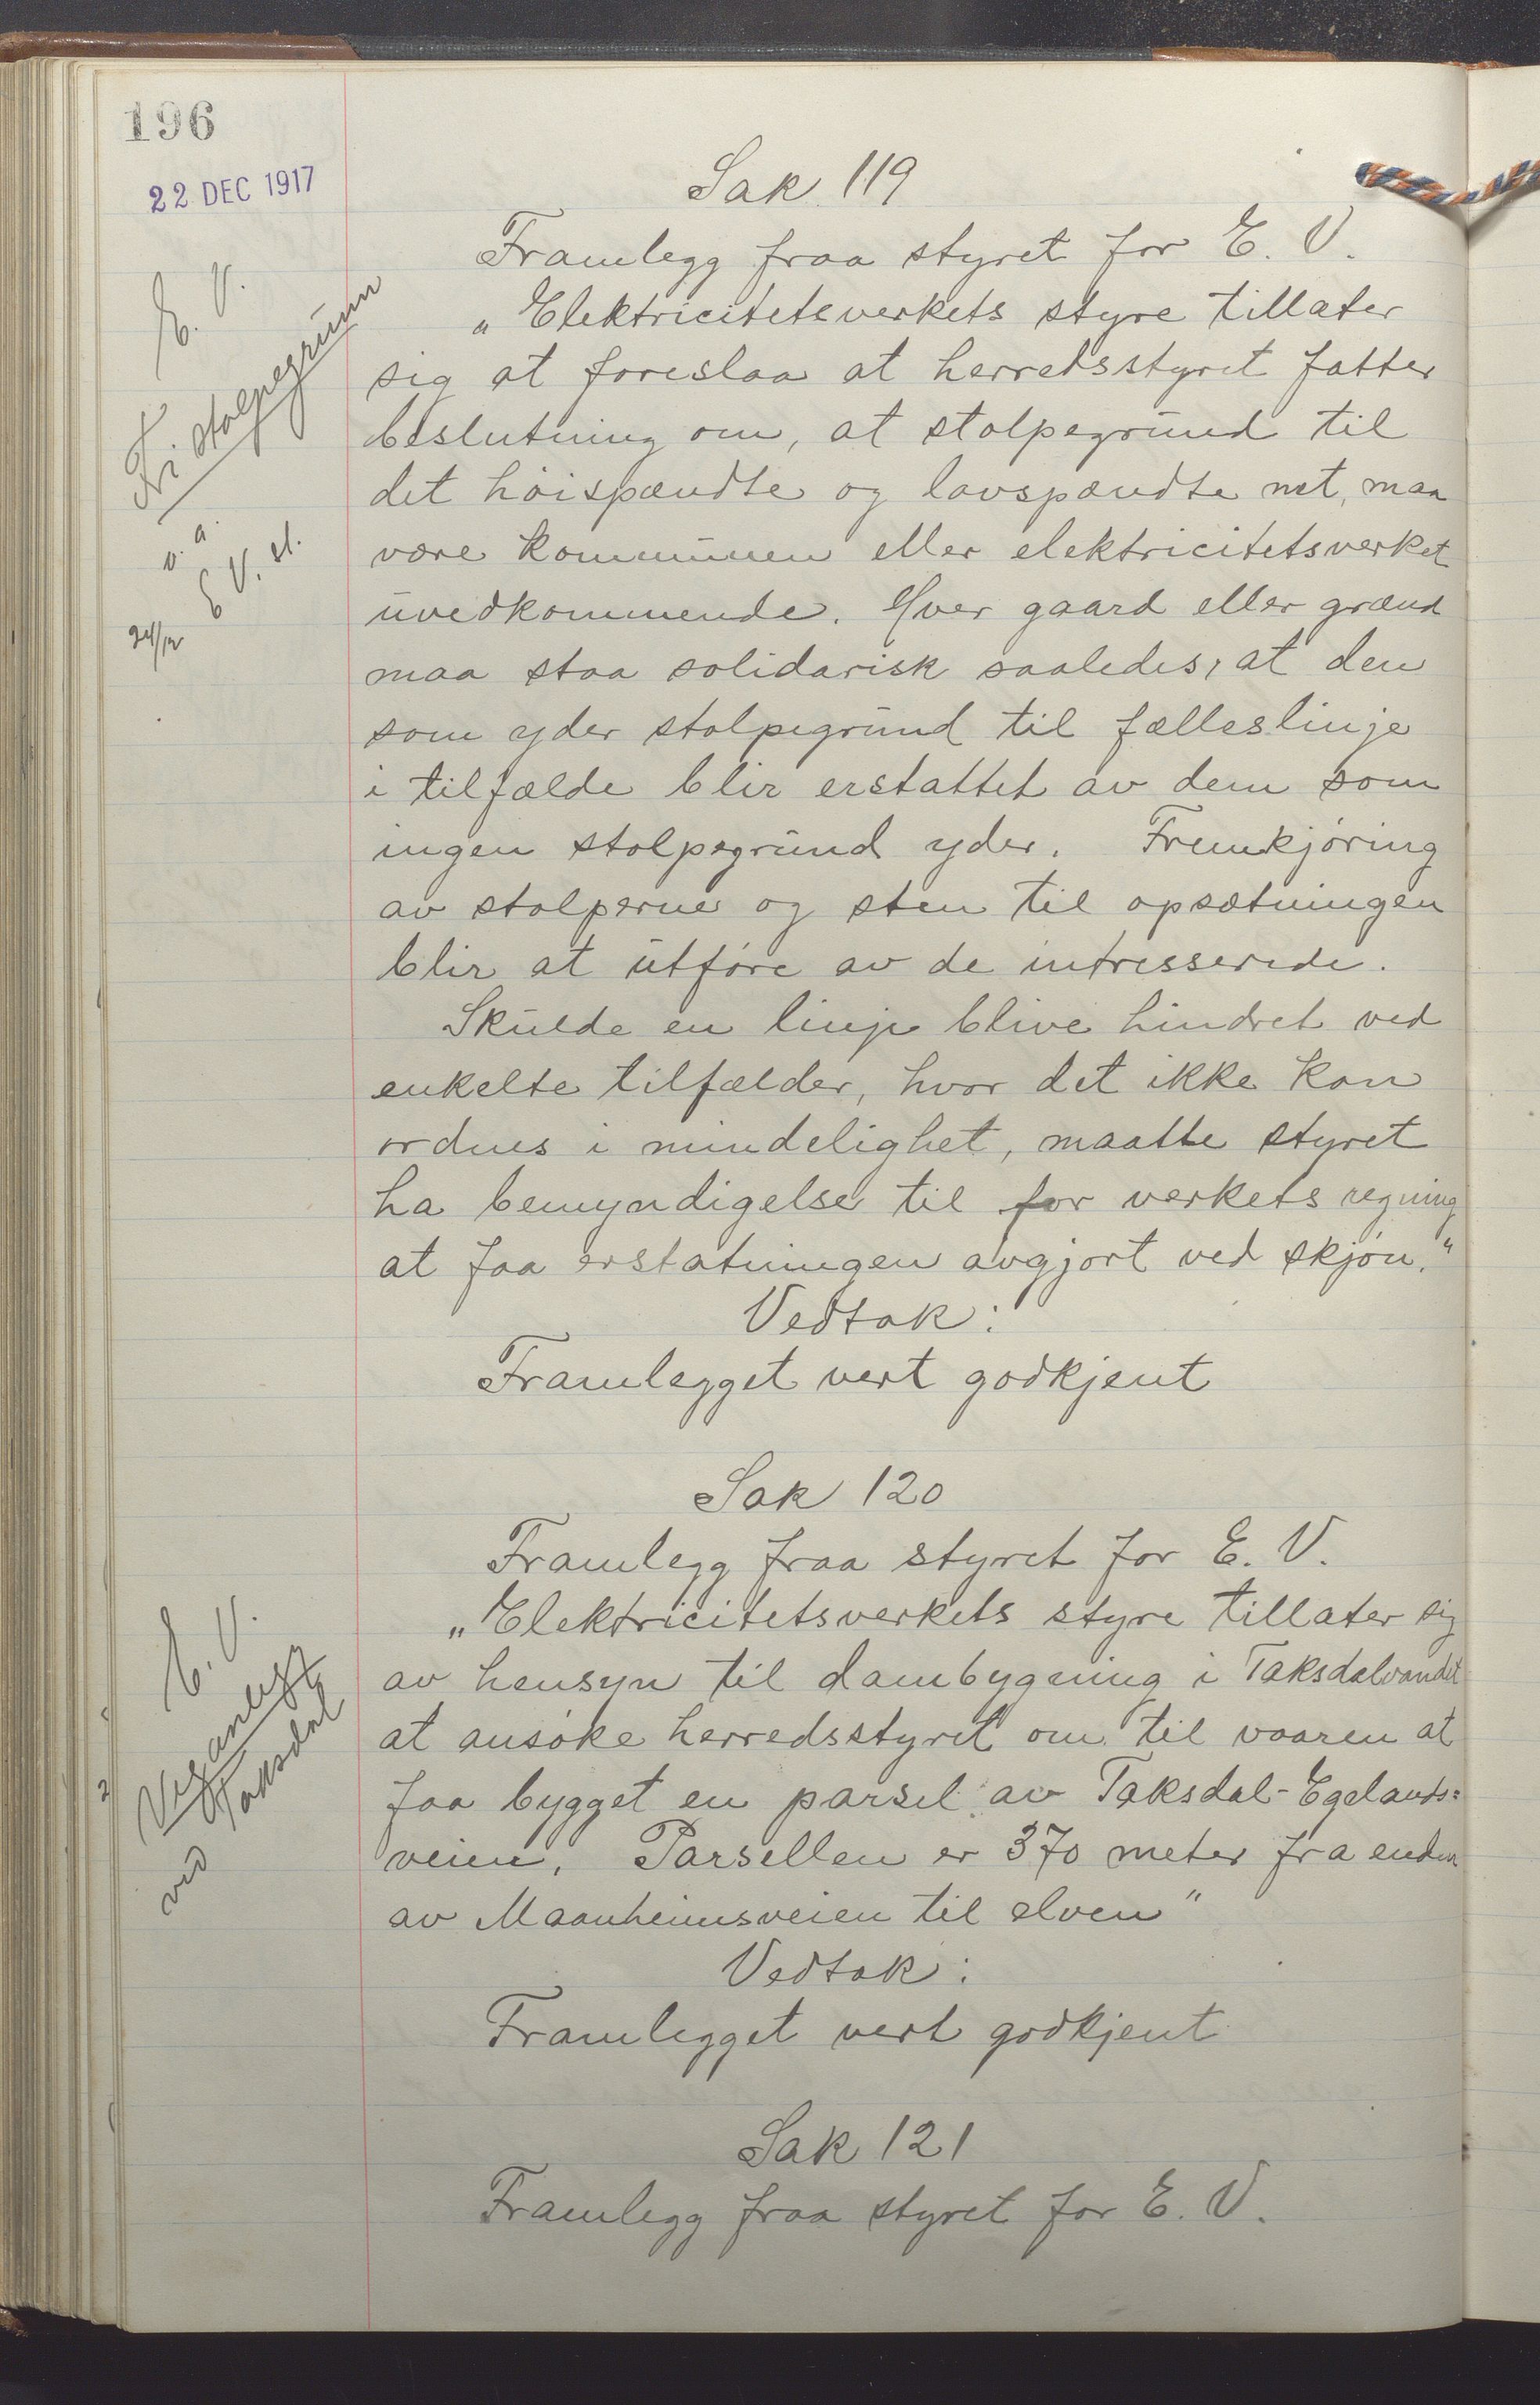 196
22 DEC 1917
Sak 119
Framlegg fraa styret for E. V.
E. V.
Fri stolpegrunn
u. a.
E V. st.
24/12
„Elektricitetsverkets styre tillater
sig at foreslaa at herredsstyret fatter
beslutning om, at stolpegrund til
det høispændte og lavspændte net, maa
være kommunen eller elektricitetsverket
uvedkommende. Hver gaard eller grænd
maa staa solidarisk saaledes, at den
som yder stolpegrund til fælleslinje
i tilfælde blir erstattet av dem som
ingen stolpegrund yder. Fremkjøring
av stolperne og sten til opsætningen
blir at utføre av de intresserede.
Skulde en linje blive hindret ved
enkelte tilfælder, hvor det ikke kan
ordnes i mindelighet, maatte styret
ha bemyndigelse til for verkets regning
at faa erstatningen avgjort ved skjøn."
Vedtak:
Framlegget vert godkjent
Sak 120
Framlegg fraa styret for E. V.
E. V.
Veganlegg
ved Taksdal
„Elektricitetsverkets styre tillater sig
av hensyn til dambygning i Taksdalvandet
at ansøke herredsstyret om til vaaren at
faa bygget en parsel av Taksdal-Egelands=
veien. Parsellen er 370 meter fra enden
av Maanheimsveien til elven"
Vedtak:
Framlegget vert godkjent
Sak 121
Framlegg fraa styret for E. V.